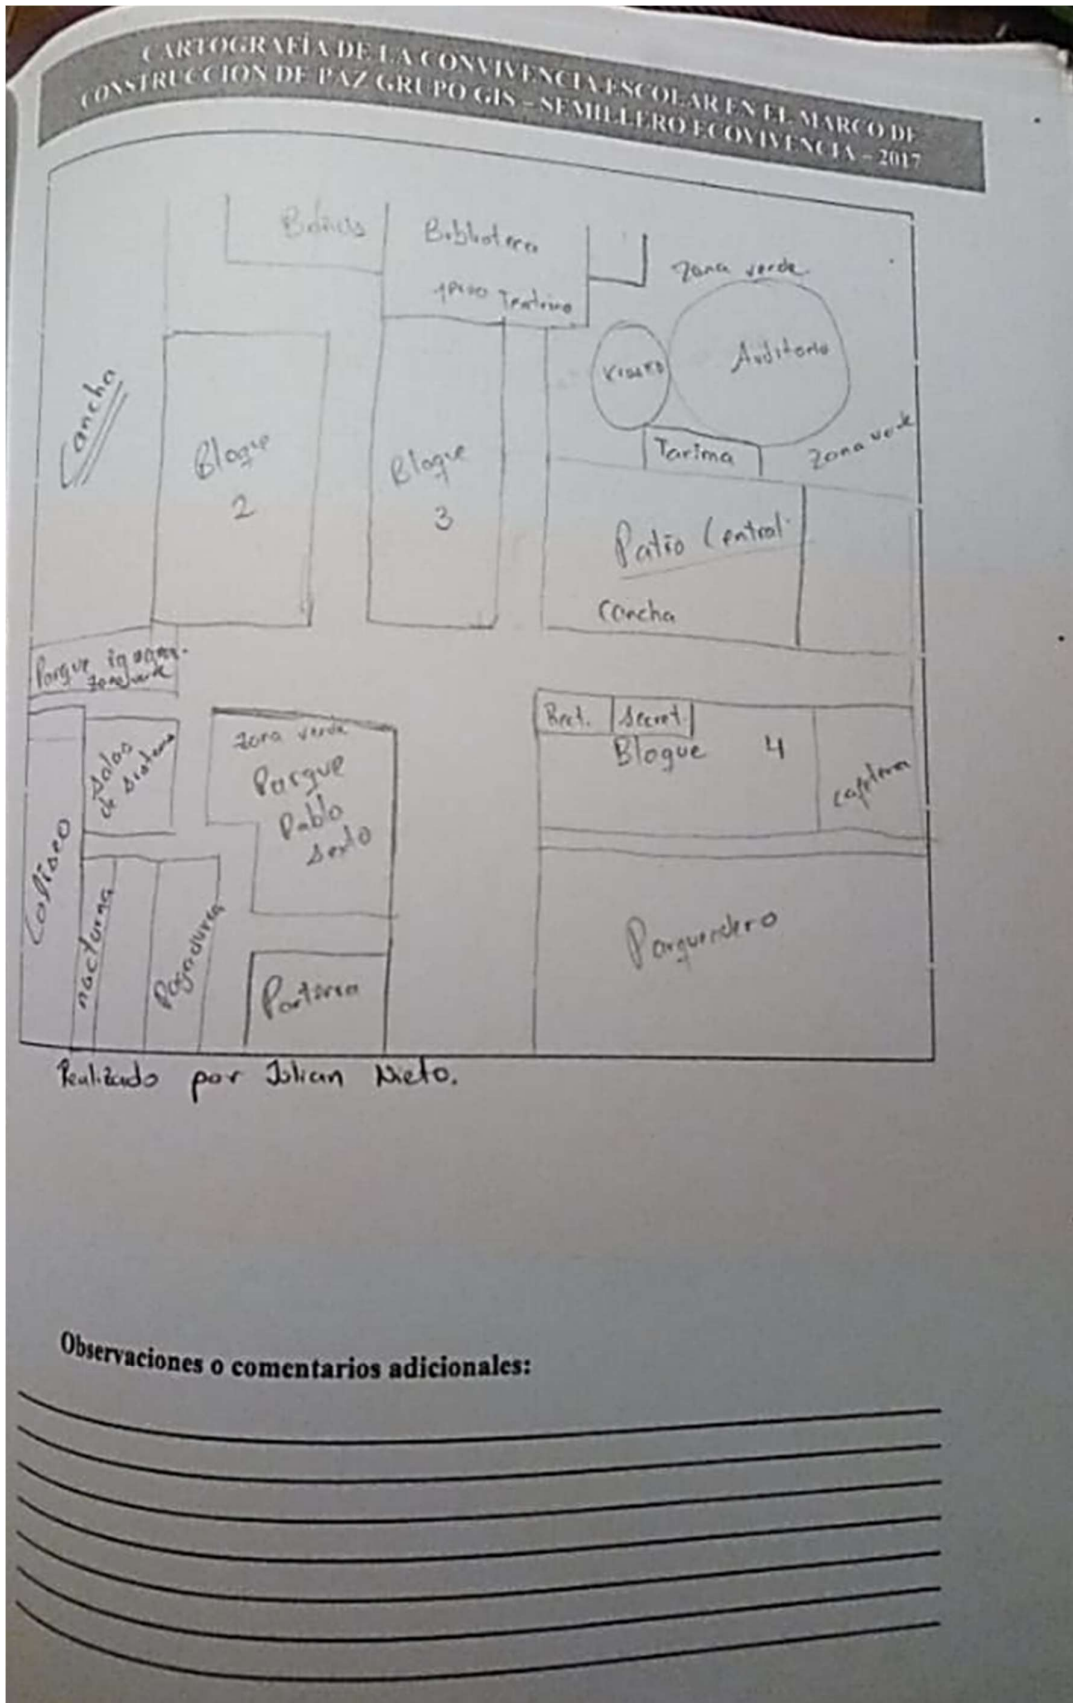 CARTOGRAFÍA DE LA CONVIVENCIA ESCOLAR EN EL MARCO DE
CONSTRUCCION DE PAZ GRUPO GIS – SEMILLERO ECOVIVENCIA – 2017
Baños
Biblioteca
Zona verde
Kiosko
Auditorio
Cancha
Bloque
2
Bloque
3
Tarima
Zona verde
Patio Central
Cancha
Parque
Zona verde
Rect.
Secret.
Bloque 4
cafeteria
Salas
de sistema
Zona verde
Parque
Pablo
Sexto
Coliseo
nocturna
Pagaduria
Porteria
Parqueadero
Realizado por Julian Nieto.
Observaciones o comentarios adicionales: